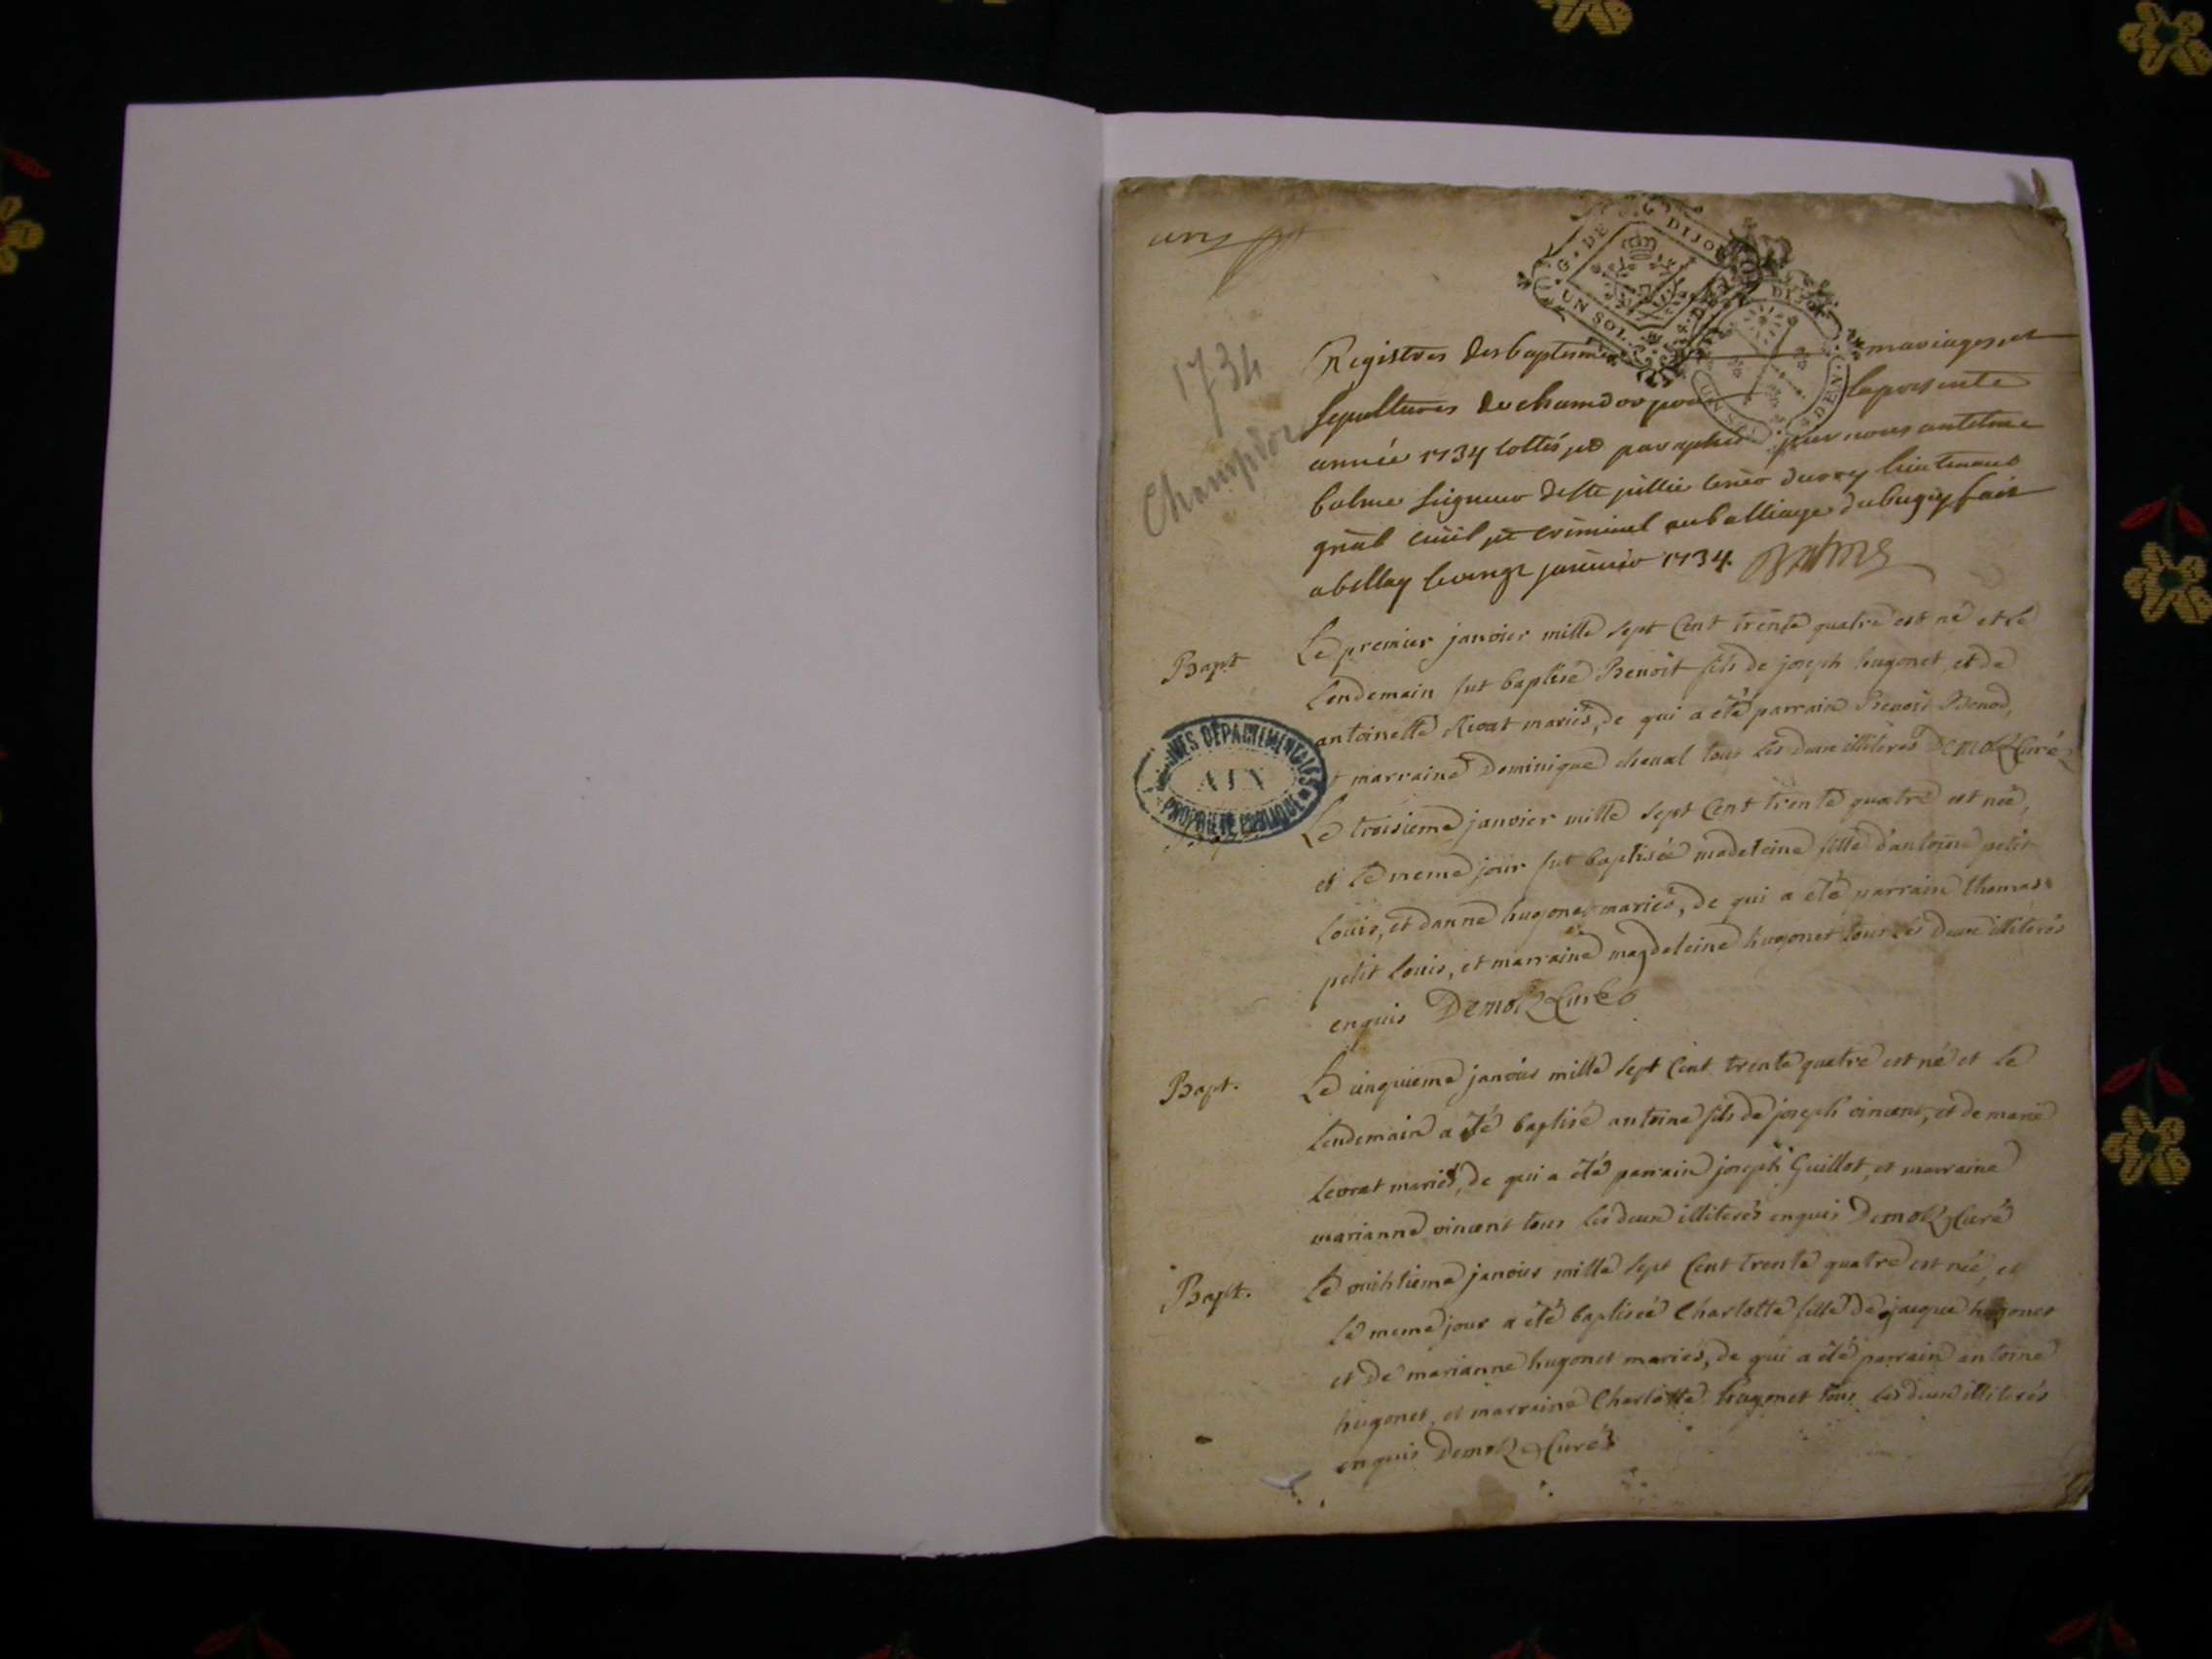 un
G. DE DIJON
UN SOL 4 DEN
DIJON
UN SOL DEN
1734
Champdor
Registres des baptesmes mariages et
sepultures de chamdor pour la presente
année 1734 cottés et paraphés par nous antelme
balme seigneur de ste jullie coner du roy lieutenant
gnãl civil et criminel au balliage du bugey fait
a bellay le vingt janvier 1734. Balme
Bapt
Le premier janvier mille sept Cent trente quatre est né et le
lendemain fut baptisé Benoit fils de joseph hugonet, et de
antoinette Revat mariés, de qui a été parrain Benoit Benod,
et marraine Dominique chenal tous les deux illiterés Demotz Curé
ARCHIVES DEPARTEMENTALES
AIN
PROPRIETE PUBLIQUE
Le troisieme janvier mille sept Cent trente quatre est née,
et le meme jour fut baptisée madeleine fille d'antoine petit
Louis, et danne hugonet mariés, de qui a été parrain thomas
petit Louis, et marraine magdeleine hugonet tous les deux illiterés
enquis Demotz Curé
Bapt.
Le cinquieme janvier mille sept Cent trente quatre est né et le
lendemain a été baptisé antoine fils de joseph vincent, et de marie
Levrat mariés, de qui a été parrain joseph Guillot, et marraine
marianne vincent tous les deux illiterés enquis Demotz Curé
Bapt.
Le ouihtieme janvier mille sept Cent trente quatre est née, et
le meme jour a été baptisée Charlotte fille de jacque hugonet
et de marianne hugonet mariés, de qui a été parrain antoine
hugonet, et marraine Charlotte hugonet tous les deux illiterés
enquis Demotz Curé